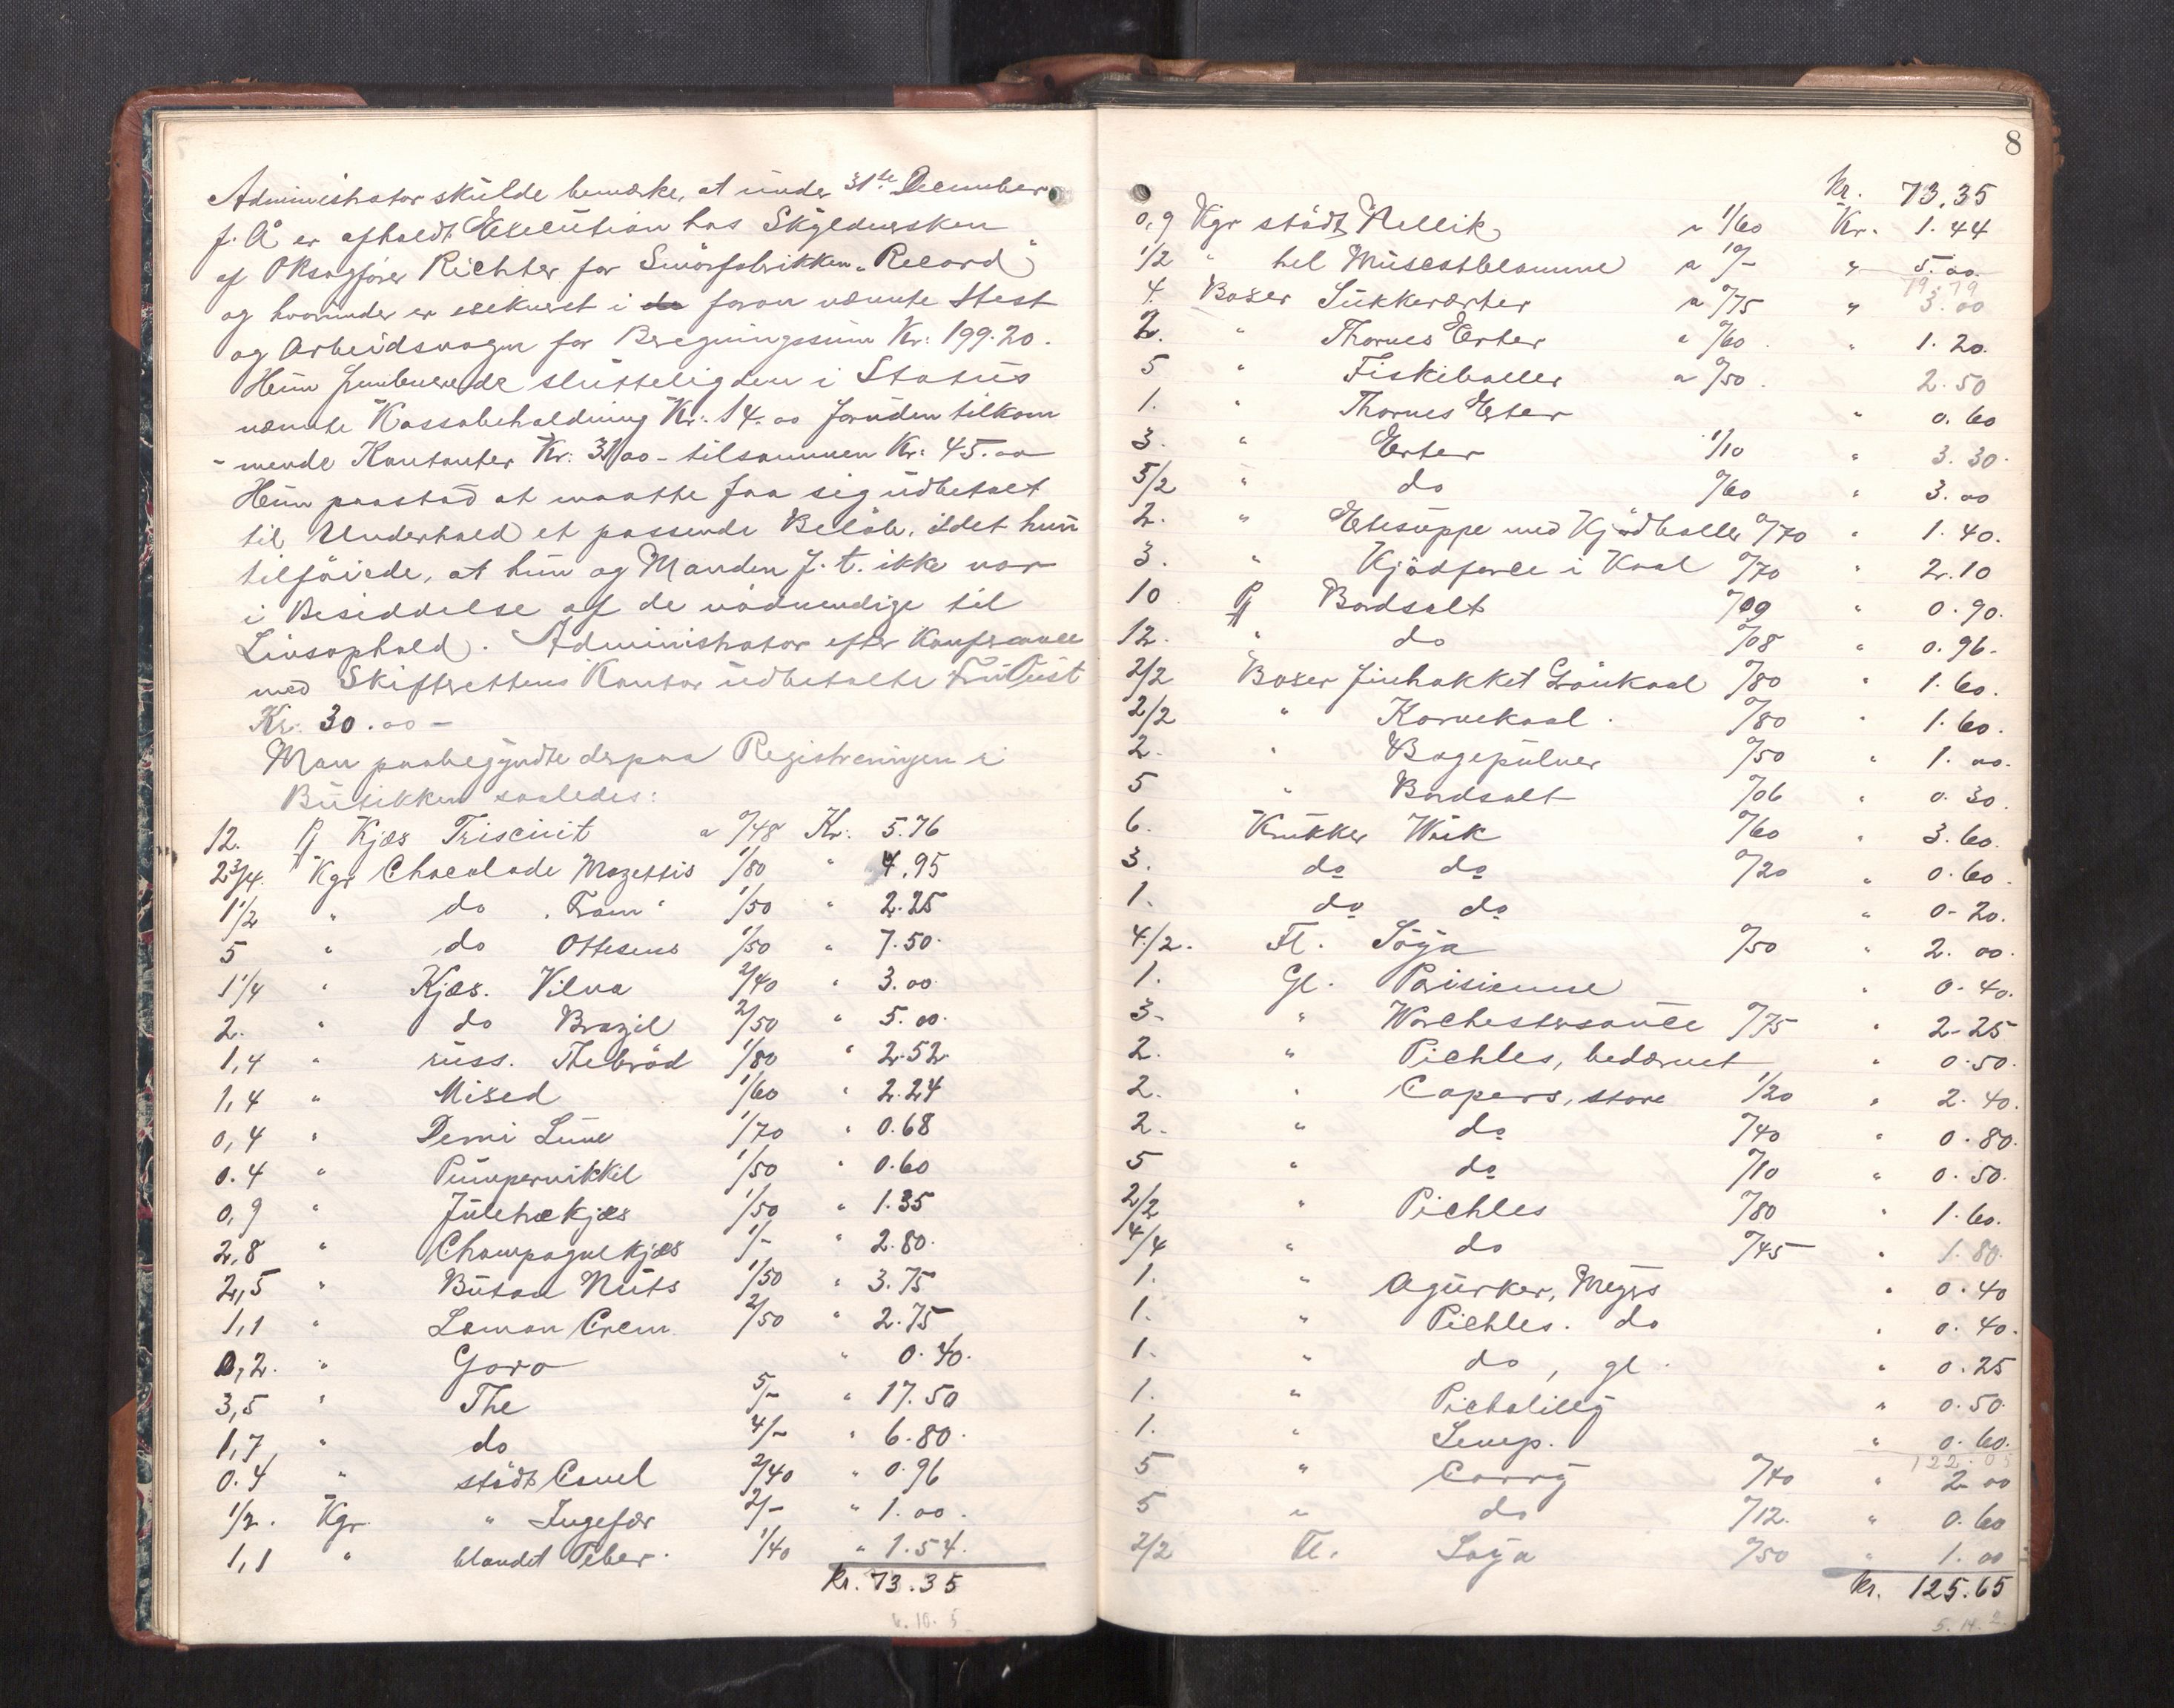 Administrator skulde bemærke, at under 31te December
f. A er afholdt Execution hos Skyldnersken
af ORsagfører Richter for Smörfabrikken "Record"
og hvorunder er exekveret i foran nævnte Hest
og Arbeidsvogn for Beregningssum Kr: 199.20.
Hun fremleverede slutteligden i Status
nævnte Kassabeholdning Kr: 14.00 foruden tilkom
-mende Kontanter Kr: 31/00 - tilsammen Kr: 45.00
Hun paastod at maatte faa sig udbetalt
til Underhold et passende Belöb, idet hun
tilföiede, at hun og Manden f. t. ikke var
i Besiddelse af de nödvendige til
Livsophold. Administrator efter Konferance
med Skifterettens Kontor udbetalte Fru Qust
Kr: 30.00 -
Man paabegyndte derpaa Registreringen i
Butikken saaledes:
12. Pj Kjæs Triscuit a 0/48 Kr. 5.76
2 3/4. Kgr Chocolade Mazettis 1/80 " 4.95
1 1/2 " do "Fram" 1/50 " 2.25
5 " do Ottesens 1/50 " 7.50.
1 1/4 " Kjæs. Vilna 2/40 " 3.00
2. " do Brazil 2/50 " 5.00.
1,4 " russ. Thebröd 1/80 " 2.52.
1,4 " Mixed 1/60 " 2.24
0,4 " Demi Lune 1/70 " 0.68
0.4 " Pumpernikkel 1/50 " 0.60
0,9 " Juletrækjæs 1/50 " 1.35
2,8 " Champagnekjæs 1/- " 2.80.
2,5 " Butan Nuts 1/50 " 3.75
1,1 " Lemon Crem 2/50 " 2.75
0,2. " Goro " 0.40.
3,5 " The 5/- " 17.50
1,7 " do 4/- " 6.80.
0.4 " stödt Canel 2/40 " 0.96
1/2. Kgr. " Ingefær 2/- " 1.00.
1,1 " blandet Peber. 1/40 " 1.54.
Kr. 73.35
6.10.5
8
Kr. 73,35
0,9 Kgr stödt Nellik a 1/60 Kr. 1.44
1/2 " hel Muscatblomme a 10/- " 5.00.
79.79
4. Boxer Sukkerærter a 0/75 " 3.00
2. " Thornes Erter a 0/60. " 1.20.
5 " Fiskeboller a 0/50. 2.50
1. " Thornes Erter " 0.60
3. " Erter 1/10 " 3.30.
5/2 " do 0/60 " 3.00
2. " Ertesuppe med Kjödboller 0/70 " 1.40.
3. " Kjödfarce i Kaal 0/70 " 2.10
10 Pj Bordsalt 0/09 " 0.90.
12. " do 0/08 " 0.96.
2/2 Boxer finhakket Grönkaal 0/80 " 1.60.
2/2 " Karvekaal. 0/80 " 1.60.
2. " Bagepulver 0/50 " 1.00.
5 " Bordsalt 0/06 " 0.30.
6. Krukker Wæk 0/60 " 3.60.
3. do do 0/20 " 0.60.
1. do do " 0.20.
4/2. Fl. Söya 0/50 " 2.00.
1. Gl. Parisienne " 0.40.
3. " Worchestersauce 0/75 " 2.25
2. " Pichles, bedærvet " 0.50.
2. " Capers, store 1/20 " 2.40.
2. " do 0/40 " 0.80.
5 " do 0/10 " 0.50.
2/2 " Pichles 0/80 " 1.60.
4/4 " do 0/45 " 1.80.
1. " Agurker, Meyers " 0.40
1. " Pichles. do " 0.40.
1. " do, gl. " 0.25
1. " Pichalilly " 0.50.
1. " Senep. " 0.60.
122.05
5 " Carry 0/40 " 2.00
5 " do 0/12. " 0.60
2/2 Fl. Soya 0/50 " 1.00
Kr. 125.65
5.14.2